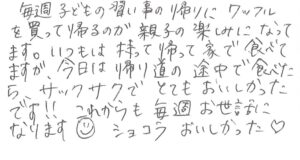 毎週子どもの習い事の帰りにワッフル
を買って帰るのが親子の楽しみになって
ます。いつもは持って帰って家で食べて
ますが、今日は帰り道の途中で食べた
ら、サックサクでとてもおいしかった
です!!これからも毎週お世話に
なります☺ ショコラおいしかった♡